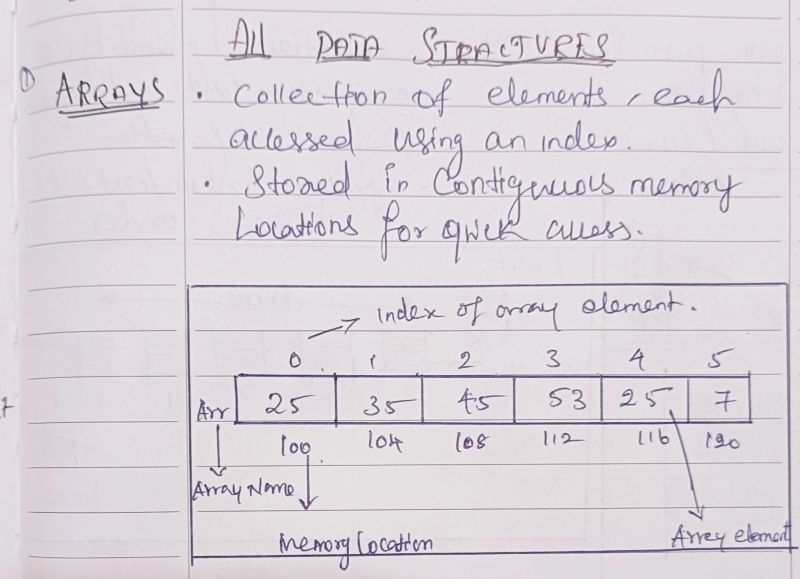 All DATA STRACTURES
① ARRAYS • Collection of elements, each
accessed using an index.
• Stored in Contiguous memory
Locations for quick access.
→ index of array element.
0 1 2 3 4 5
Arr 25 35 45 53 25 7
100 104 108 112 116 120
Array Name
Memory Location Arrey element